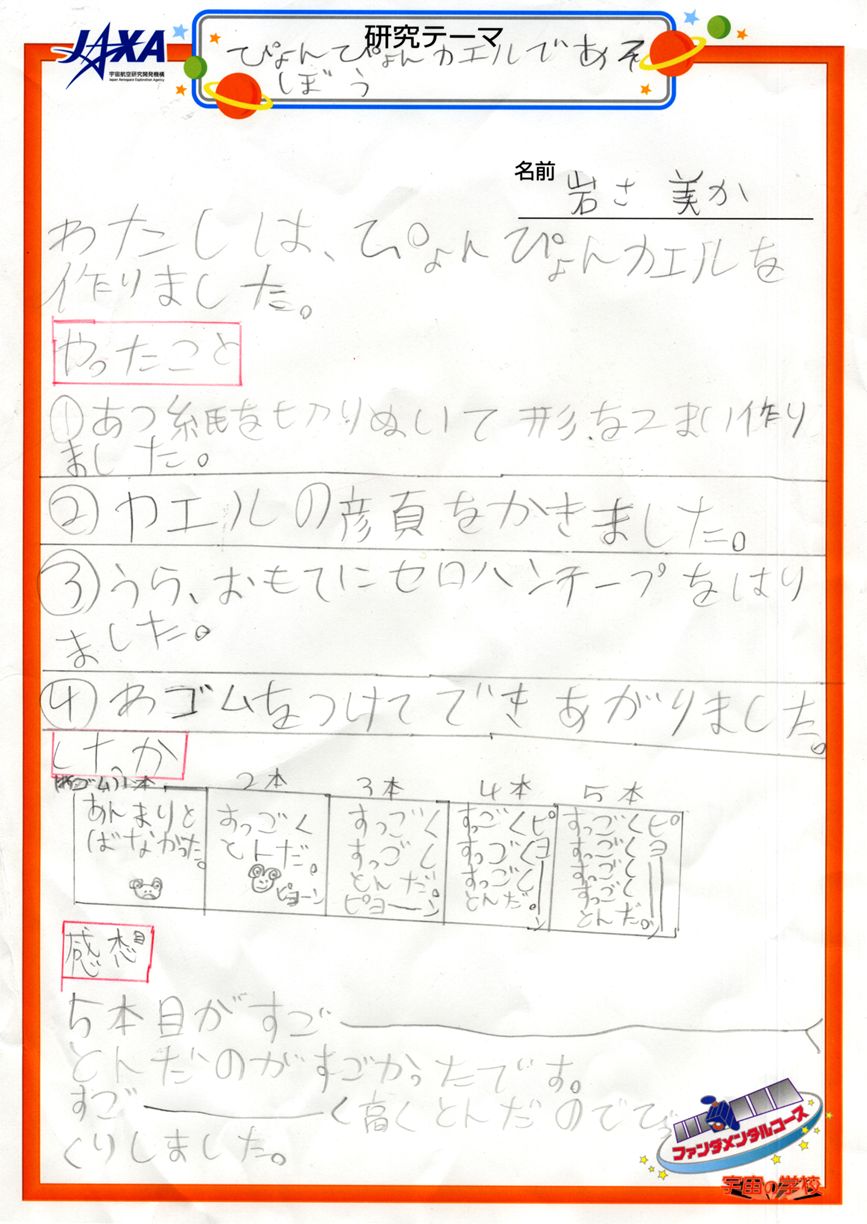 JAXA
宇宙航空研究開発機構
Japan Aerospace Exploration Agency
研究テーマ
ぴょんぴょんカエルであそ
ぼう
名前 岩さ 美か
わたしは、ぴょんぴょんカエルを
作りました。
やったこと
①あつ紙を切りぬいて形を2まい作り
ました。
②カエルの顔をかきました。
③うら、おもてにセロハンテープをはり
ました。
④わゴムをつけてできあがりました。
けっか
(わゴム)1本 2本 3本 4本 5本
あんまりと
ばなかった。
すっごく
とんだ。
ピョーン
すっごく
すっごく
とんだ。
ピョーン
すっごく
すっごく
すっごく
とんだ。
ピョーン
すっごく
すっごく
すっごく
すっごく
とんだ。
ピョーン
感想
5本目がすごーーーく
とんだのがすごかったです。
すごーーーく高くとんだのでび
くりしました。
ファンダメンタルコース
宇宙の学校